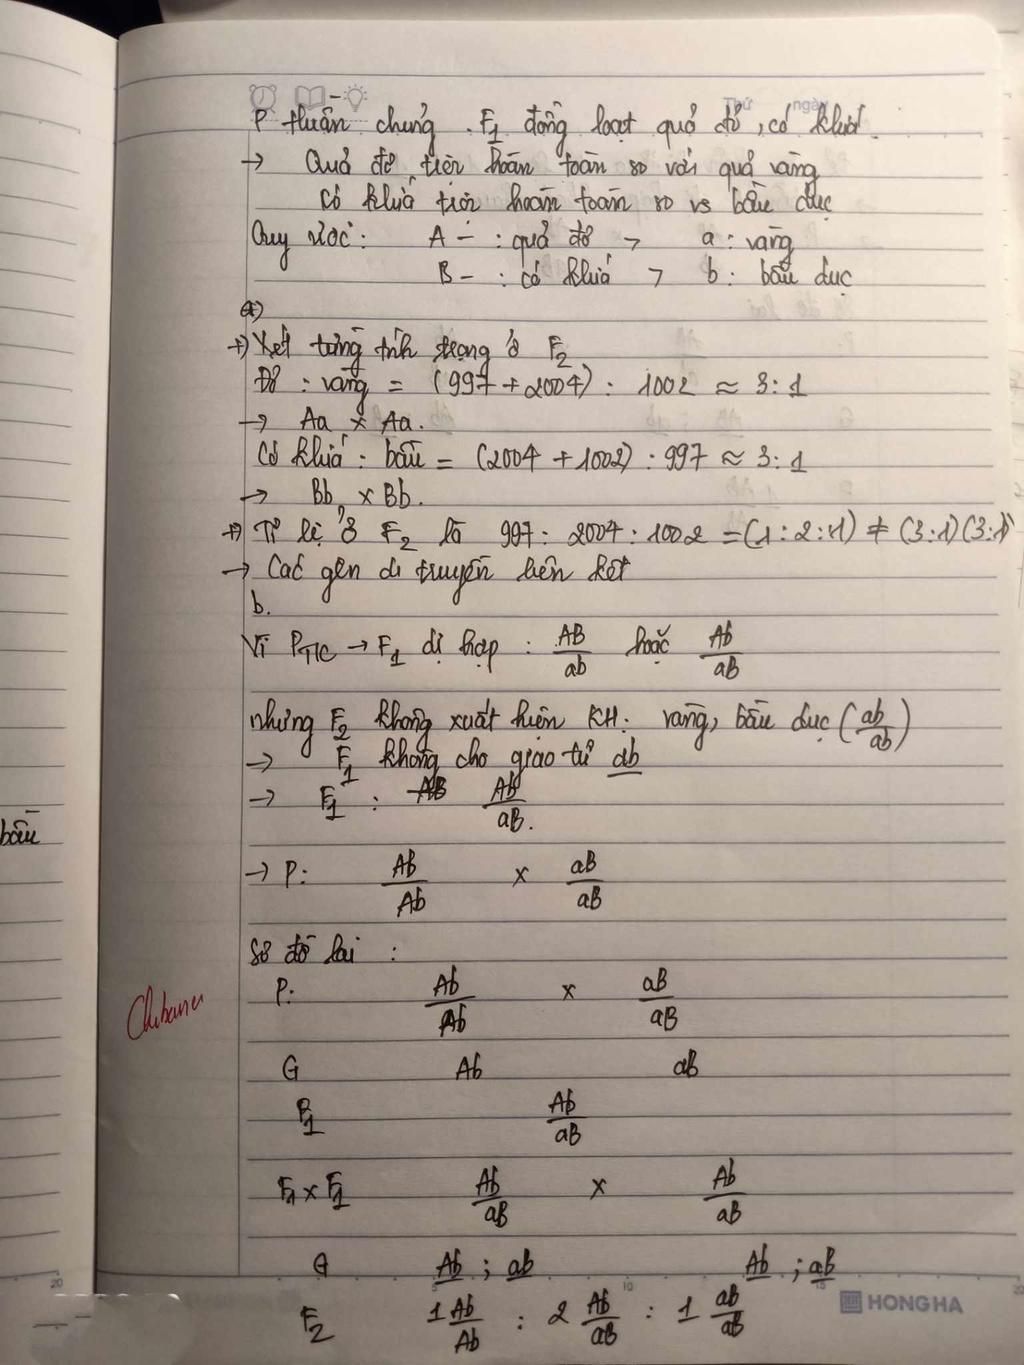 Thứ ngày
P thuần chủng. F1 đồng loạt quả đỏ, có khứa.
→ Quả đỏ trội hoàn toàn so với quả vàng
Có khứa trội hoàn toàn so vs bầu dục
Quy ước: A - : quả đỏ > a: vàng
B - : có khứa > b: bầu dục
a)
+) Xét từng tính trạng ở F2
Đỏ : vàng = (997 + 2004) : 1002 ≈ 3:1
→ Aa x Aa.
Có khứa : bầu = (2004 + 1002) : 997 ≈ 3:1
→ Bb x Bb.
+) Tỉ lệ ở F2 là 997 : 2004 : 1002 = (1:2:1) ≠ (3:1)(3:1)
→ Các gen di truyền liên kết
b.
Vì PT/C → F1 dị hợp : AB/ab hoặc Ab/aB
nhưng F2 không xuất hiện KH: vàng, bầu dục (ab/ab)
→ F1 không cho giao tử ab
→ F1 : AB Ab/aB.
bầu
→ P: Ab/Ab x aB/aB
Sơ đồ lai :
P: Ab/Ab x aB/aB
Chibanu
G Ab aB
F1 Ab/aB
F1 x F1 Ab/aB x Ab/aB
G Ab ; aB Ab ; aB
20 10 15
HONG HA
F2 1 Ab/Ab : 2 Ab/aB : 1 aB/aB